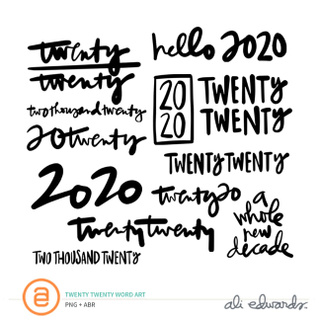 twenty
twenty
hello 2020
20
20
TWENTY
TWENTY
twothousandtwenty
20twenty
TWENTYTWENTY
2020
twenty20
a
whole
new
decade
twentytwenty
TWO THOUSAND TWENTY
a
TWENTY TWENTY WORD ART
PNG + ABR
ali edwards